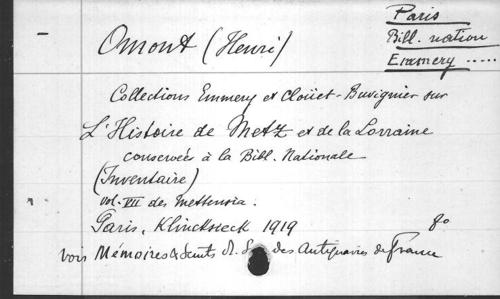 Paris
Bibl. nation
Emmery .....
Omont (Henri)
Collections Emmery et Cloüet-Buvignier sur
L'Histoire de Metz et de la Lorraine
conservées à la Bibl. Nationale
(Inventaire)
vol. VII des Mettensia.
Paris, Klincksieck 1919 8o
voir Mémoires & des Antiquaires de France